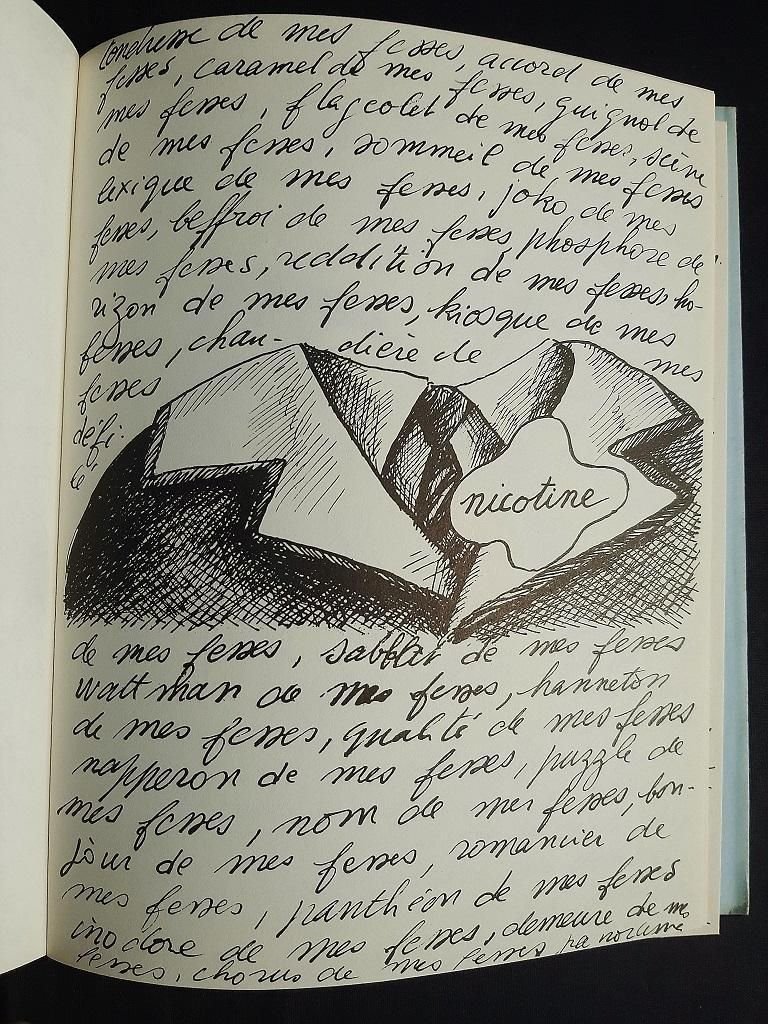 tendresse de mes fesses, accord de mes
fesses, caramel de mes fesses, guignol de
mes fesses, flageolet de mes fesses, scène
de mes fesses, sommeil de mes fesses
lexique de mes fesses, joko de mes
fesses, beffroi de mes fesses, phosphore de
mes fesses, reddition de mes fesses, ho-
rizon de mes fesses, kiosque de mes
fesses, chau- dière de mes
fesses
défi-
lé
nicotine
de mes fesses, sabbat de mes fesses
wattman de mes fesses, hanneton
de mes fesses, qualité de mes fesses
napperon de mes fesses, puzzle de
mes fesses, nom de mes fesses, bon-
jour de mes fesses, romancier de
mes fesses, panthéon de mes fesses
inodore de mes fesses, demeure de mes
fesses, chorus de mes fesses panorama